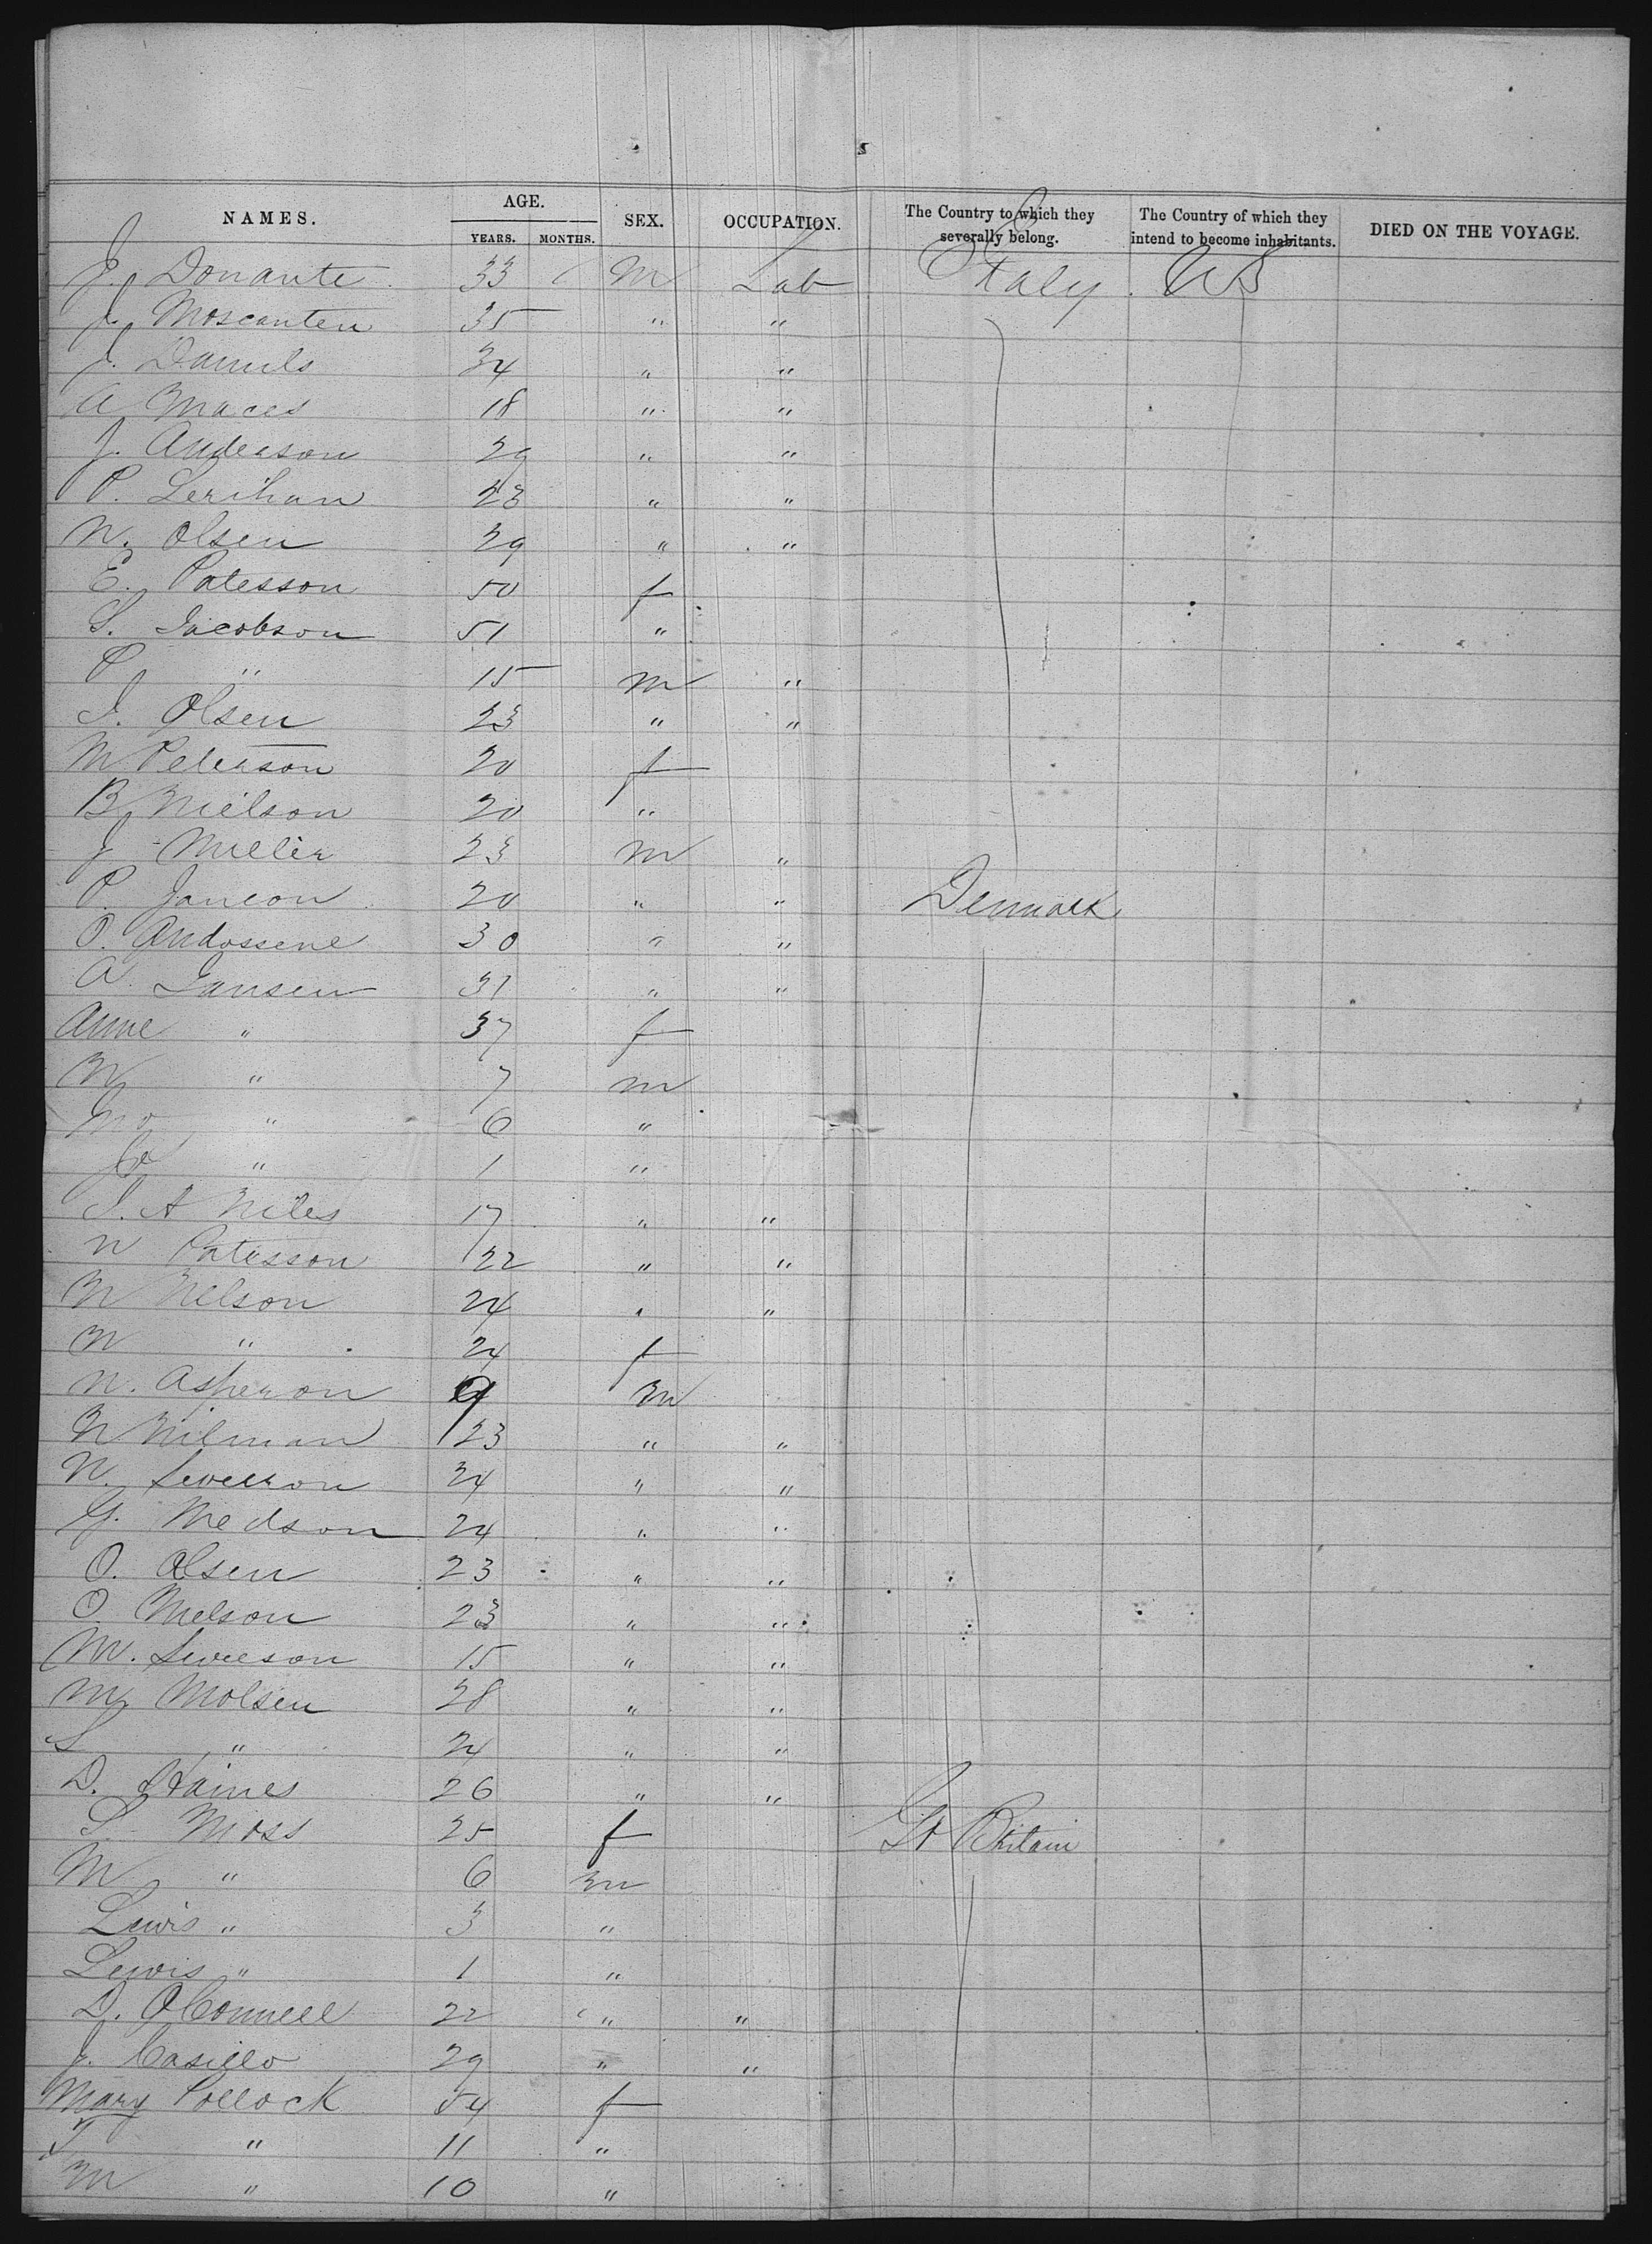 NAMES. AGE. SEX. OCCUPATION. The Country to which they severally belong. The Country of which they intend to become inhabitants. DIED ON THE VOYAGE.
YEARS. MONTHS.
J. Donante 33 M Lab Italy US
J. Moscanten 35 " "
J. Daniels 34 " "
A Maces 18 " "
J. Anderson 29 " "
P. Lerihan 23 " "
N. Olsen 29 " "
E. Patesson 50 f
S. Jacobson 51 "
P " 15 M "
I. Olsen 23 " "
M Peterson 20 f
B Nielson 20 "
J Miller 23 M "
P. Jancon 20 " " Denmark
O. Andossene 30 " "
A. Jansen 31 " "
Anne " 37 f
M " 7 m
Mo " 6 "
Jo " 1 "
I. A Niles 17 " "
N Patesson 22 " "
N Nelson 24 " "
M " 24 f
N. Asperon 9 m
N Nilman 23 " "
N. Sweeson 24 " "
G. Medson 24 " "
O. Olsen 23 " "
O. Melson 23 " "
M. Sweeson 15 " "
M Molsen 28 " "
S " 24 " "
D. Haines 26 " "
S. Moss 25 f Gt Britain
M " 6 m
Lewis " 3 "
Lewis " 1 "
D. OConnell 22 " "
J. Casillo 29 " "
Mary Pollock 54 f
T " 11 "
M " 10 "